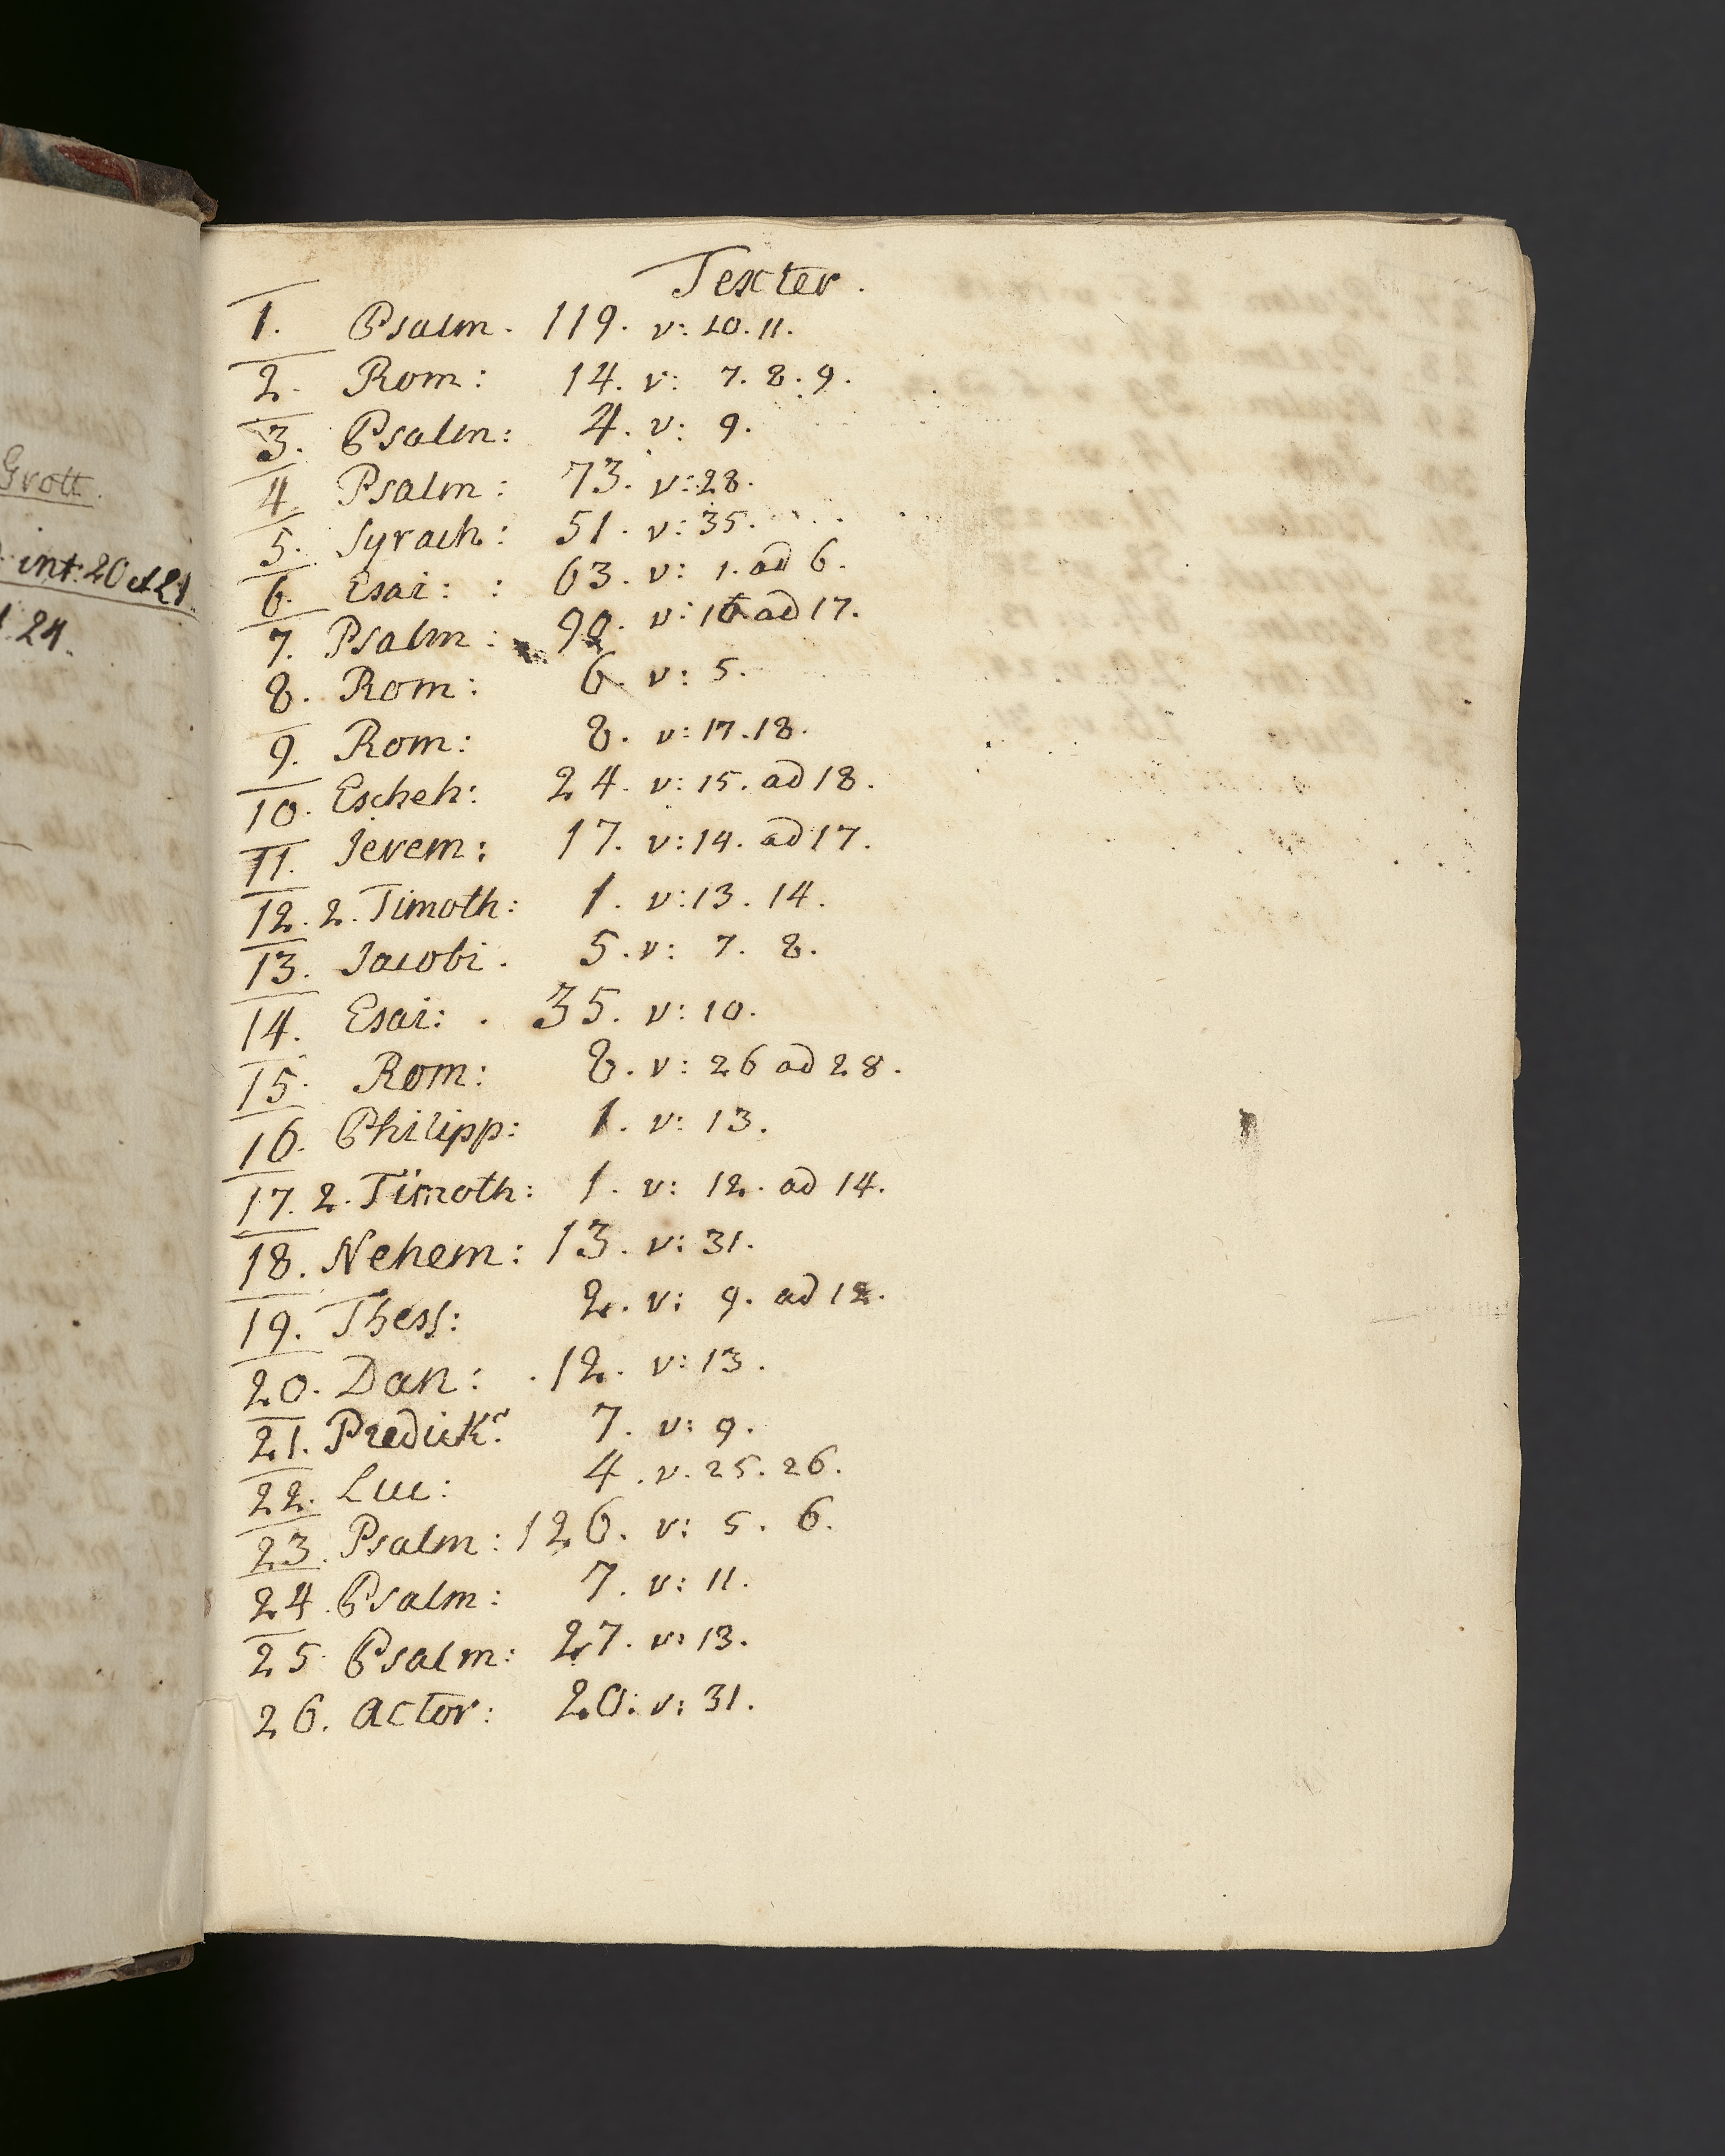 Grott.
int: 20 et 21.
24.
Texter.
1. Psalm. 119. v: 10. 11.
2. Rom: 14. v: 7. 8. 9.
3. Psalm: 4. v: 9.
4. Psalm: 73. v: 28.
5. Syrach: 51. v: 35.
6. Esai: : 63. v: 1. ad 6.
7. Psalm: 90. v: 16 ad 17.
8. Rom: 6. v: 5.
9. Rom: 8. v: 17. 18.
10. Escheh: 24. v: 15. ad 18.
11. Jerem: 17. v: 14. ad 17.
12. 2. Timoth: 1. v: 13. 14.
13. Jacobi. 5. v: 7. 8.
14. Esai: . 35. v: 10.
15. Rom: 8. v: 26 ad 28.
16. Philipp: 1. v: 13.
17. 2. Timoth: 1. v: 12. ad 14.
18. Nehem: 13. v: 31.
19. Thess: 2. v: 9. ad 12.
20. Dan: . 12. v: 13.
21. Predickr: 7. v: 9.
22. Luc: 4. v. 25. 26.
23. Psalm: 126. v: 5. 6.
24. Psalm: 7. v: 11.
25. Psalm: 27. v: 13.
26. Actor: 20: v: 31.